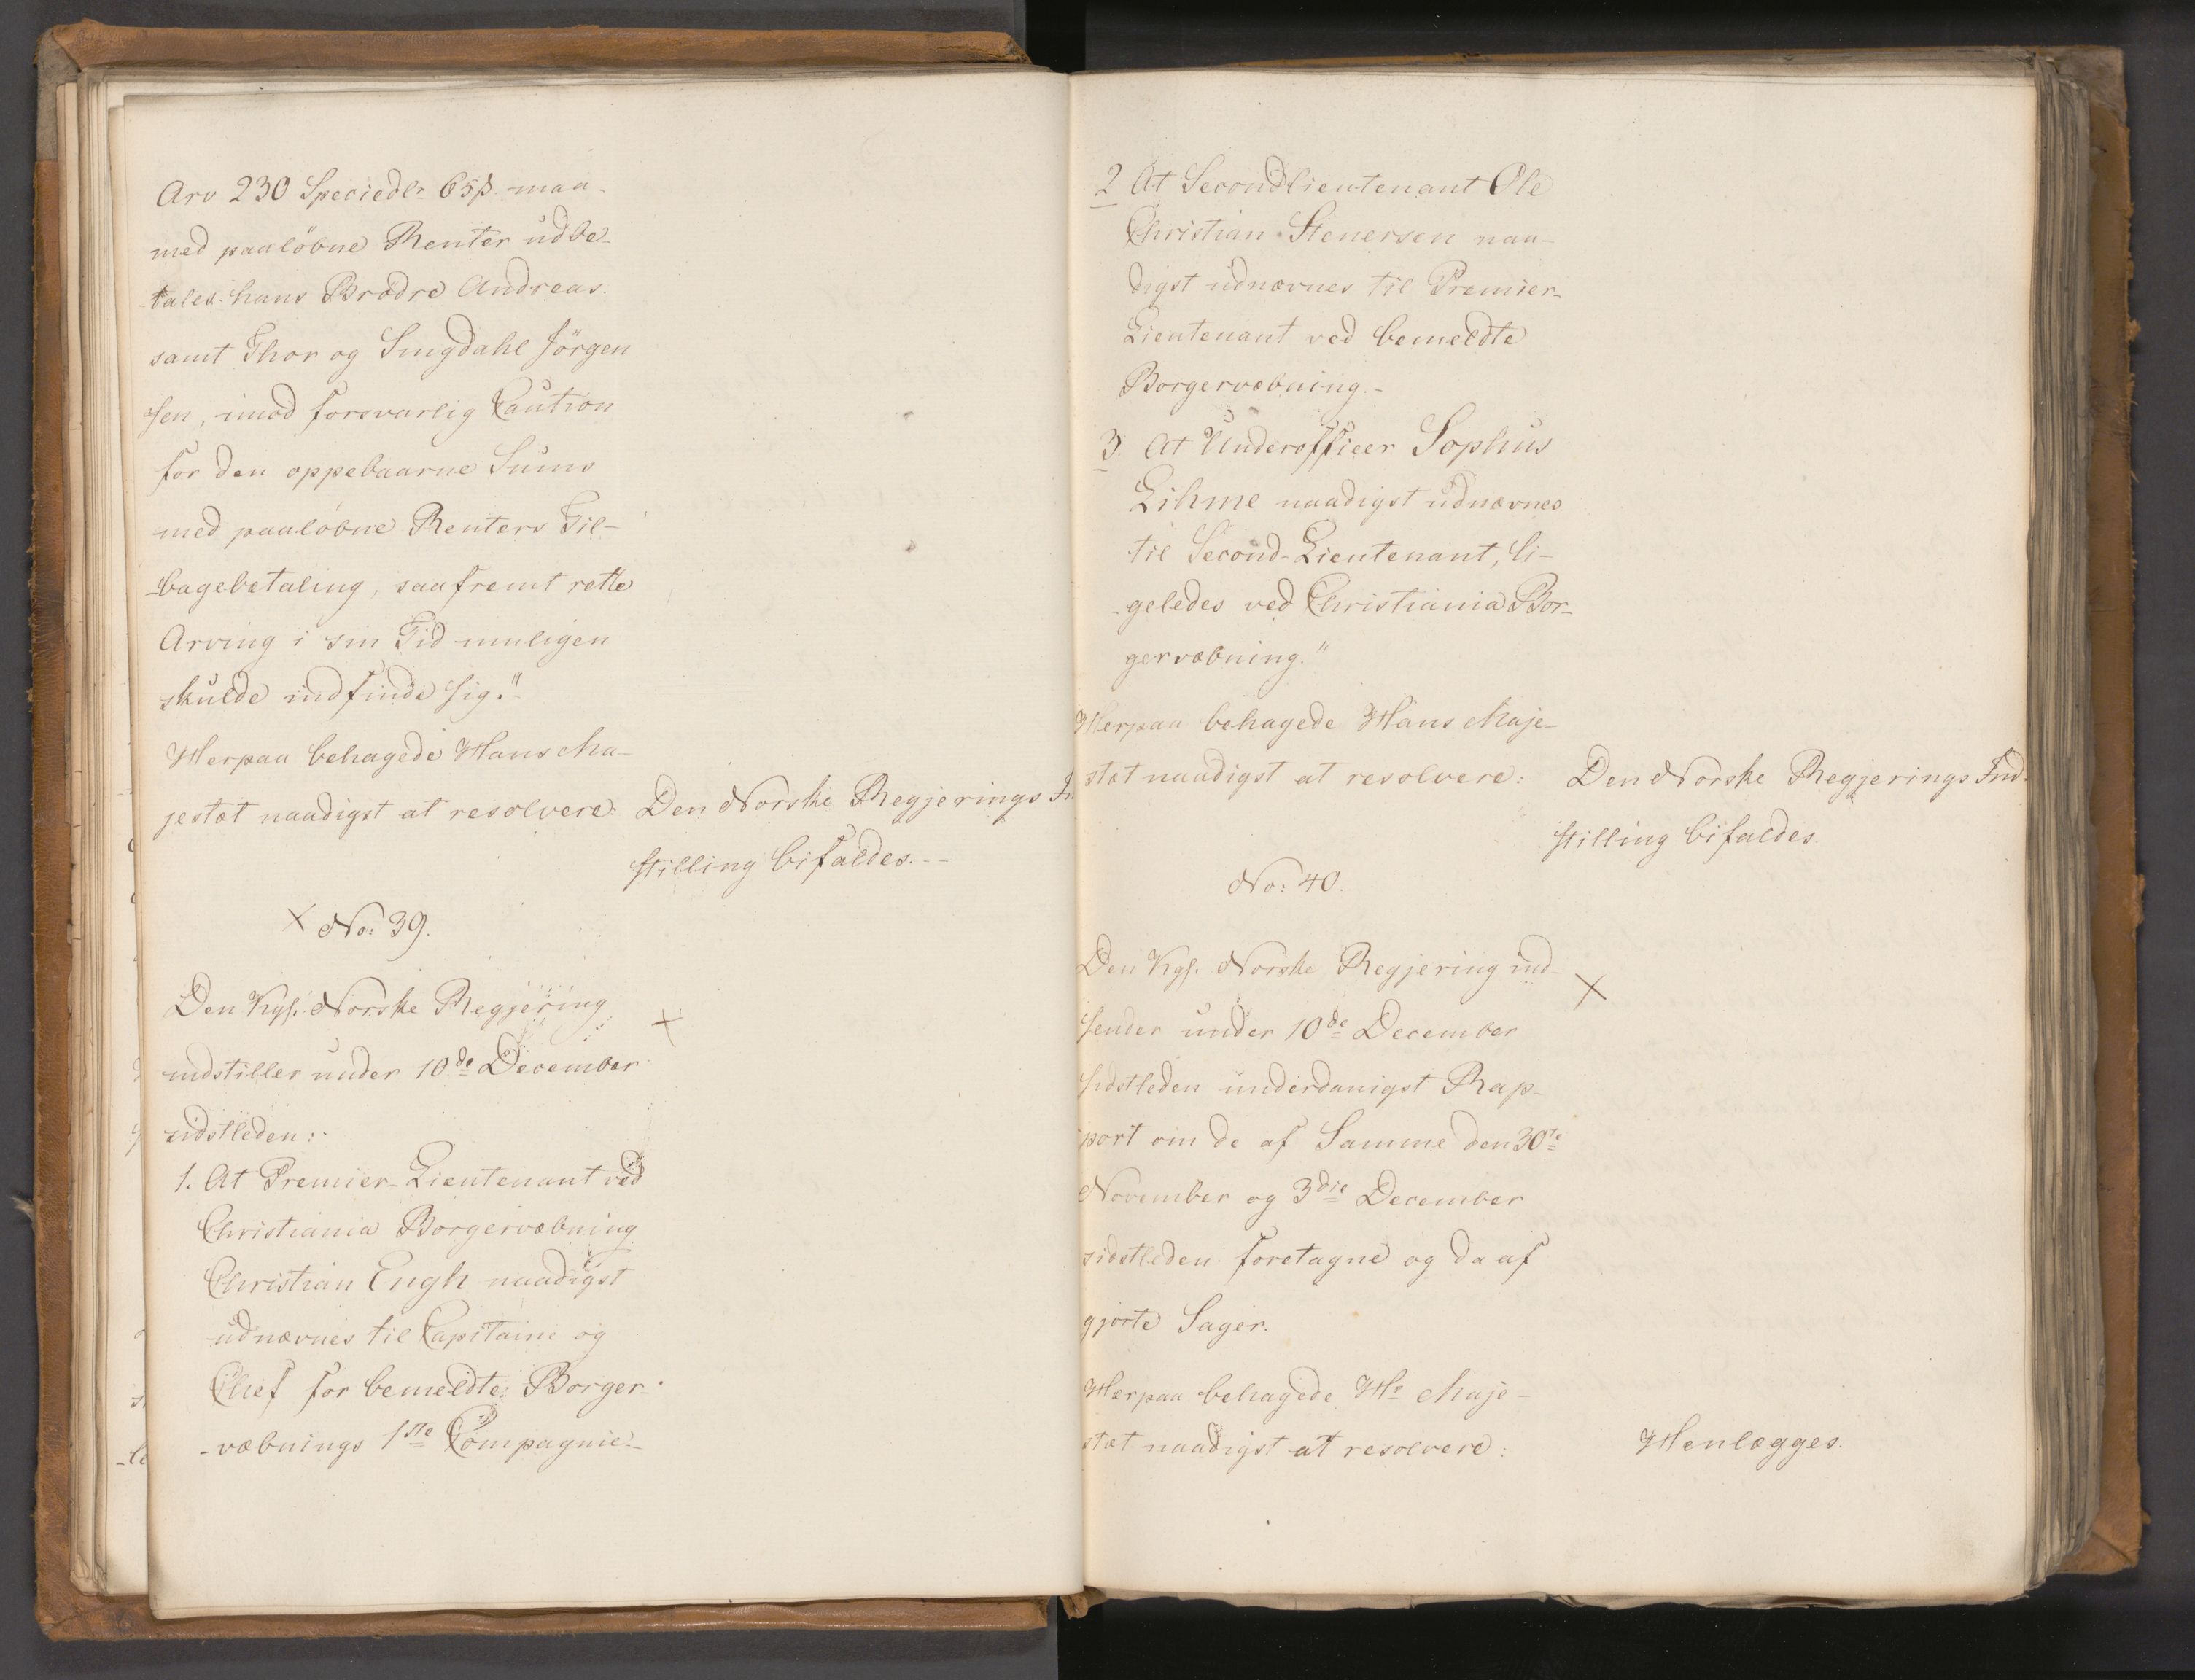 Arv 230 Speciedlr 65ß. maa
med paalöbne Renter udbe-
tales hans Brödre Andreas
samt Thor og Singdahl Jörgen
sen, imod forsvarlig Caution
for den oppebaarne Sums
med paalöbne Renters Til-
-bagebetaling, saafremt rette
Arving i sin Tid muligen
skulde indfinde sig."
Herpaa behagede Hans Ma-
jestæt naadigst at resolvere: Den Norske Regjerings In
stilling bifaldes.--
No: 39.
Den Kgl. Norske Regjering
indstiller under 10de December
sidstleden:
1. At Premier-Lieutenant ved
Christiania Borgervæbning
Christian Engh naadigst
udnævnes til Capitaine og
Chef for bemeldte Borger-
-væbnings 1ste Compagnie.-
2 At Secondlieutenant Ole
Christian Stenersen naa-
digst udnævnes til Premier-
Lieutenant ved bemeldte
Borgervæbning.-
3. At Underofficer Sophus
Lihme naadigst udnævnes
til Second-Lieutenant, li-
-geledes ved Christiania Bor-
gervæbning."
Herpaa behagede Hans Maje-
stæt naadigst at resolvere: Den Norske Regjerings Ind-
stilling bifaldes
No: 40.
Den Kgl. Norske Regjering ind-
sender under 10de December
sidstleden underdanigst Rap-
port om de af Samme den 30te
November og 3die December
sidstleden foretagne og da af
gjorte Sager.
Herpaa behagede Hs Maje-
stæt naadigst at resolvere: Henlægges.